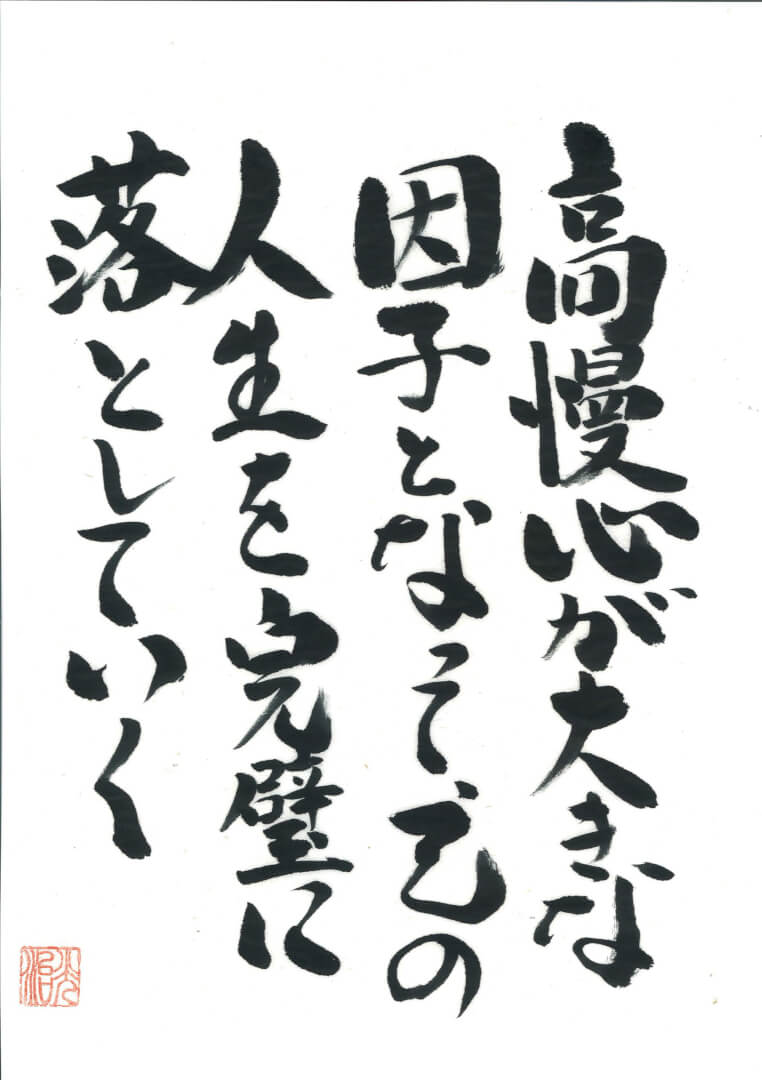 高慢心が大きな
因子となってその
人生を完璧に
落としていく